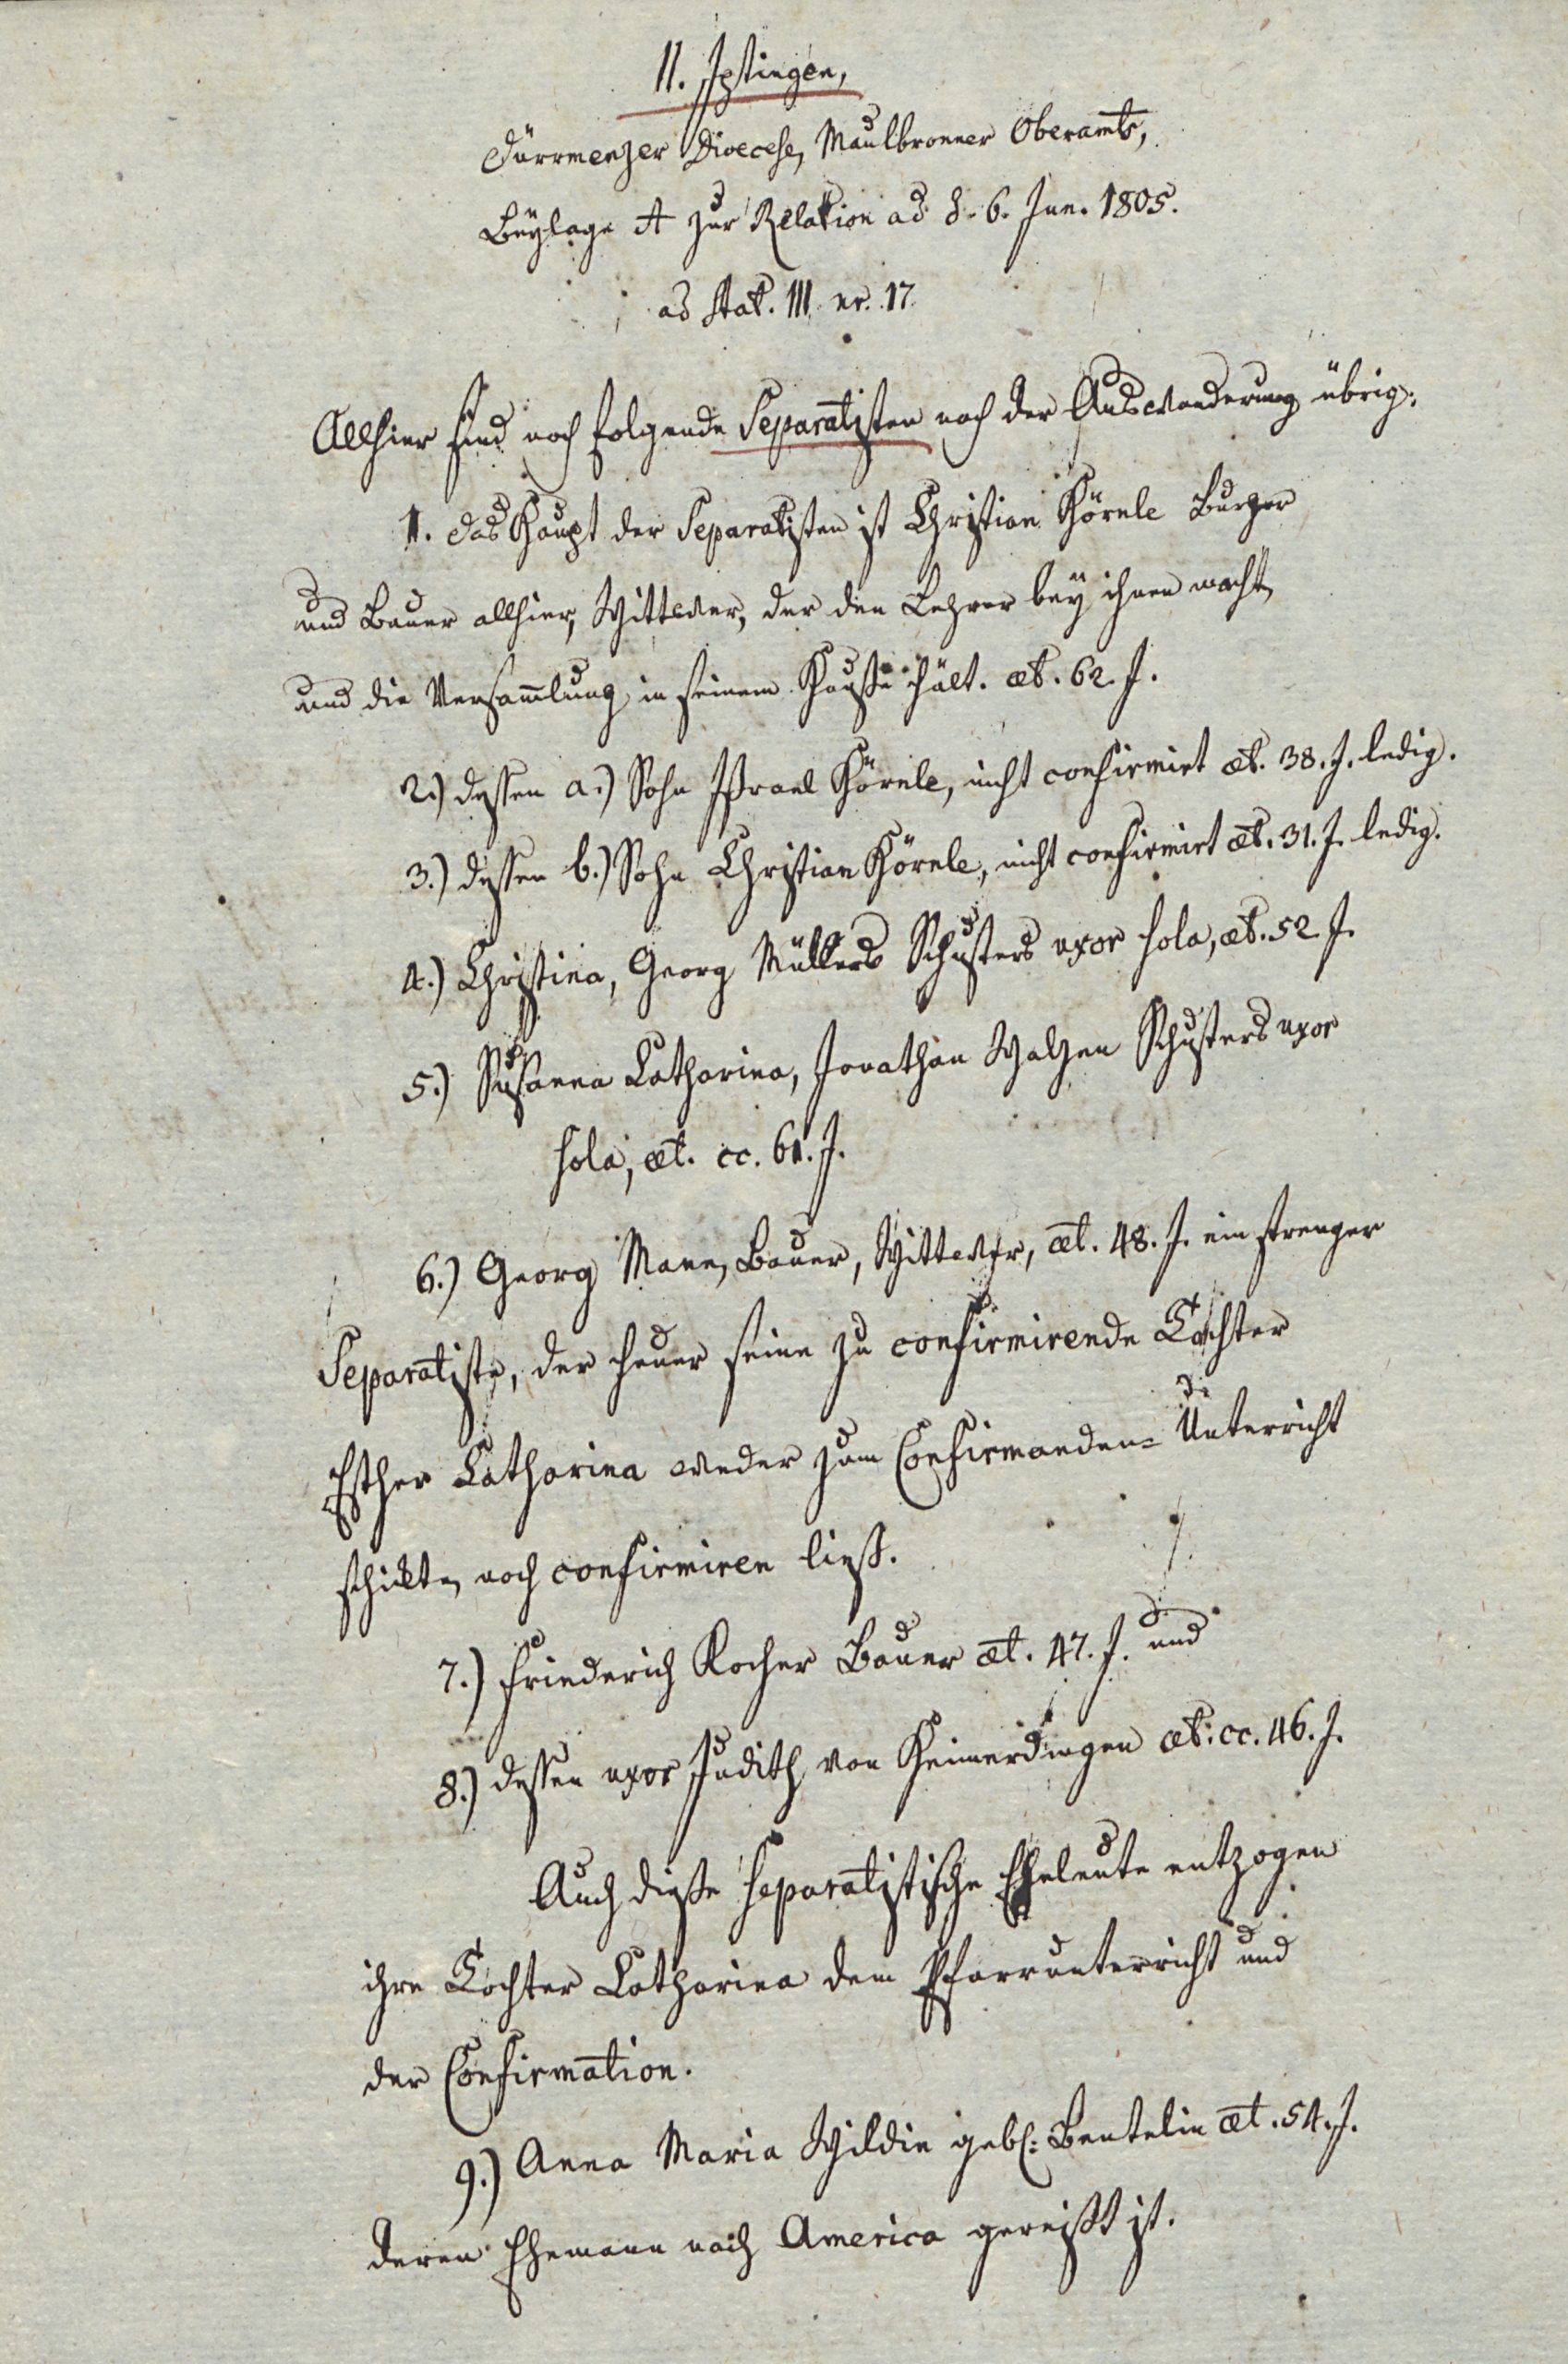 11. Iptingen,
Dürrmenzer Dioecese, Maulbronner Oberamts,
Beylage A zur Relation ad d. 6. Jun. 1805.
ad stat. III. nr. 17.
Allhier sind noch folgende Separatisten nach der Auswanderung übrig:
1. Das Haupt der Separatisten ist Christian Hörnle Burger
und Bauer allhier, Wittwer, der den Lehrer bey ihnen macht,
und die Versam̄lung in seinem Hausse hält. æt. 62. J.
2.) dessen a.) Sohn Israel Hörnle, nicht confirmirt æt. 38. J. ledig.
3.) dessen b.) Sohn Christian Hörnle, nicht confirmirt æt. 31. J. ledig.
4.) Christina, Georg Müllers Schusters uxor sola, æt. 52. J.
5.) Susanna Catharina, Jonathan Walzen Schusters uxor
sola, æt. cc. 61. J.
6.) Georg Mann, Bauer, Wittwer, æt. 48. J. ein strenger
Separatiste, der heuer seine zu confirmirende Tochter
Esther Catharina weder zum Confirmanden=Unterricht
schikte, noch confirmiren liess.
7.) Friederich Kocher Bauer æt. 47. J. und
8.) dessen uxor Judith von Heimerdingen æt. cc. 46. J.
Auch diesse separatistische Eheleute entzogen
ihre Tochter Catharina dem Pfarrunterricht und
der Confirmation.
9.) Anna Maria Wildin geb. Bentelin æt. 54. J.
deren Ehemann nach America gereisst ist.